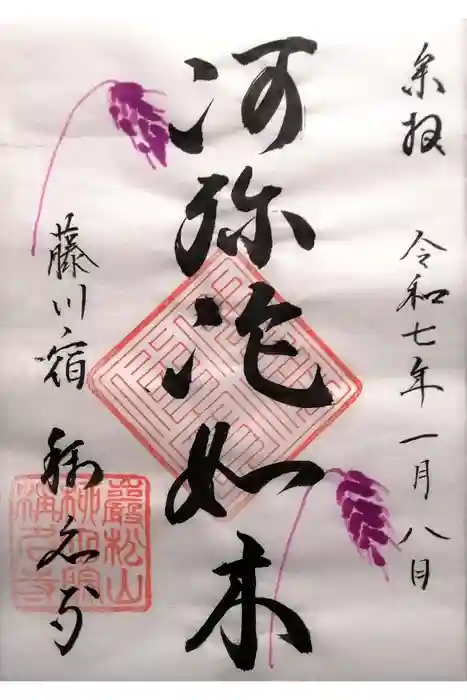 奉拝
令和七年一月八日
阿弥陀如来
藤川宿
称名寺
巖松山